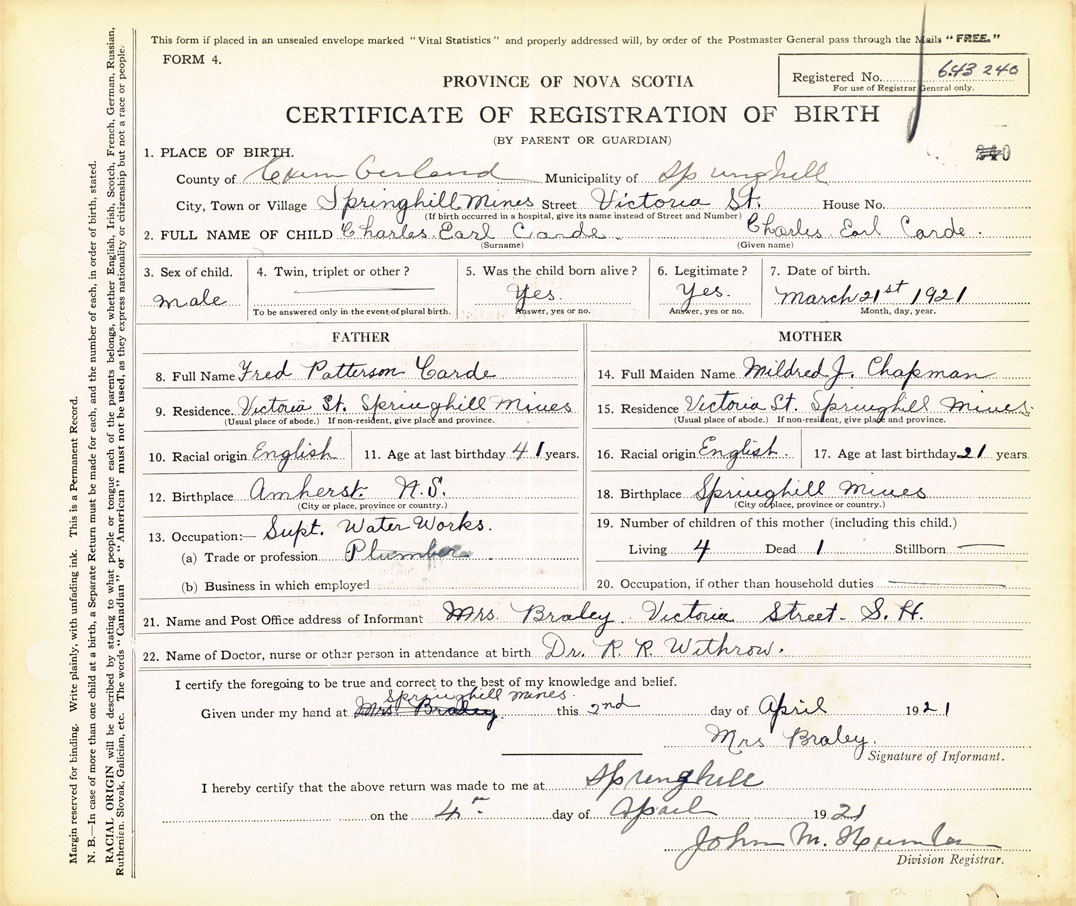 This form if placed in an unsealed envelope marked "Vital Statistics" and properly addressed will, by order of the Postmaster General pass through the Mails "FREE."
FORM 4.
PROVINCE OF NOVA SCOTIA
Registered No. 643 240
For use of Registrar General only.
CERTIFICATE OF REGISTRATION OF BIRTH
(BY PARENT OR GUARDIAN)
240
1. PLACE OF BIRTH.
County of Cumberland Municipality of Springhill
City, Town or Village Springhill Mines Street Victoria St. House No.
(If birth occurred in a hospital, give its name instead of Street and Number)
2. FULL NAME OF CHILD Charles Earl Carde Charles Earl Carde.
(Surname) (Given name)
3. Sex of child. 4. Twin, triplet or other? 5. Was the child born alive? 6. Legitimate? 7. Date of birth.
male Yes. Yes. March 21st 1921
To be answered only in the event of plural birth. Answer, yes or no. Answer, yes or no. Month, day, year.
FATHER MOTHER
8. Full Name Fred Patterson Carde 14. Full Maiden Name Mildred J. Chapman
9. Residence. Victoria St. Springhill Mines 15. Residence Victoria St. Springhill Mines
(Usual place of abode.) If non-resident, give place and province. (Usual place of abode.) If non-resident, give place and province.
10. Racial origin English 11. Age at last birthday 41 years. 16. Racial origin English. 17. Age at last birthday 21 years
12. Birthplace Amherst N.S. 18. Birthplace Springhill Mines
(City or place, province or country.) (City or place, province or country.)
13. Occupation:— Supt. Water Works. 19. Number of children of this mother (including this child.)
(a) Trade or profession Plumber Living 4 Dead 1 Stillborn —
(b) Business in which employed 20. Occupation, if other than household duties —
21. Name and Post Office address of Informant Mrs. Braley. Victoria Street. S. H.
22. Name of Doctor, nurse or other person in attendance at birth Dr. R. R. Withrow.
I certify the foregoing to be true and correct to the best of my knowledge and belief.
Springhill Mines.
Given under my hand at Mrs. Braley this 2nd day of April 1921
Mrs Braley.
Signature of Informant.
I hereby certify that the above return was made to me at Springhill
on the 4th day of April 1921
John M.
Division Registrar.
Margin reserved for binding. Write plainly, with unfading ink. This is a Permanent Record.
N. B.—In case of more than one child at a birth, a Separate Return must be made for each, and the number of each, in order of birth, stated.
RACIAL ORIGIN will be described by stating to what people or tongue each of the parents belongs, whether English, Irish, Scotch, French, German, Russian,
Ruthenian, Slovak, Galician, etc. The words "Canadian" or "American" must not be used, as they express nationality or citizenship but not a race or people.